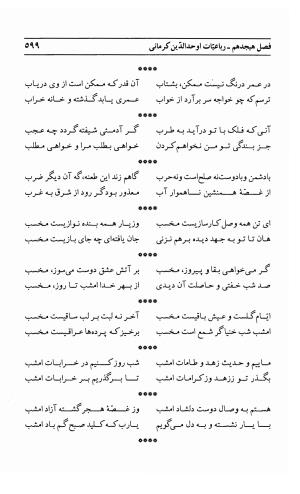 فصل هیجدهم - رباعیّات اوحدالدّین کرمانی ۵۹۹
****
در عمر درنگ نیست ممکن، بشتاب آن قدر که ممکن است از وی دریاب
ترسم که چو خواجه سر برآرد از خواب عمری یابد گذشته و خانه خراب
****
آنی که فلک با تو درآید به طرب گر آدمئی شیفته گردد چه عجب
جز بندگی تو من نخواهم کردن خواهی بطلب مرا و خواهی مطلب
****
بادشمن وبادوست‌نه صلح‌است ونه‌حرب گاهم زند این طعنه، گه آن دیگر ضرب
از غصّهٔ همنشین ناهموار آب معذور بود گر رود از شرق به غرب
****
ای تن همه وصل کارسازیست مخسب وزیار همه بنده نوازیست مخسب
هان تا تو به جهد دیده برهم نزنی جان یافته‌ای چه جای بازیست مخسب
****
گر می‌خواهی بقا و پیروز، مخسب بر آتش عشق دوست می‌سوز، مخسب
صد شب خفتی و حاصلت آن دیدی از بهر خدا امشب تا روز، مخسب
****
ایّام گلست و عیش باقیست مخسب آخر نه لبت بر لب ساقیست مخسب
امشب شب خنیاگر شمع است مخسب برخیز که پرده‌ها عراقیست مخسب
****
ماییم و حدیث زهد و طامات امشب شب روز کنیم در خرابات امشب
بگذر تو ززهد وزکرامات امشب تا برگذریم بر خرابات امشب
****
هستم به وصال دوست دلشاد امشب وز غصّهٔ هجر گشته آزاد امشب
با یار نشسته و به دل می‌گویم یارب که کلید صبح گم باد امشب
****